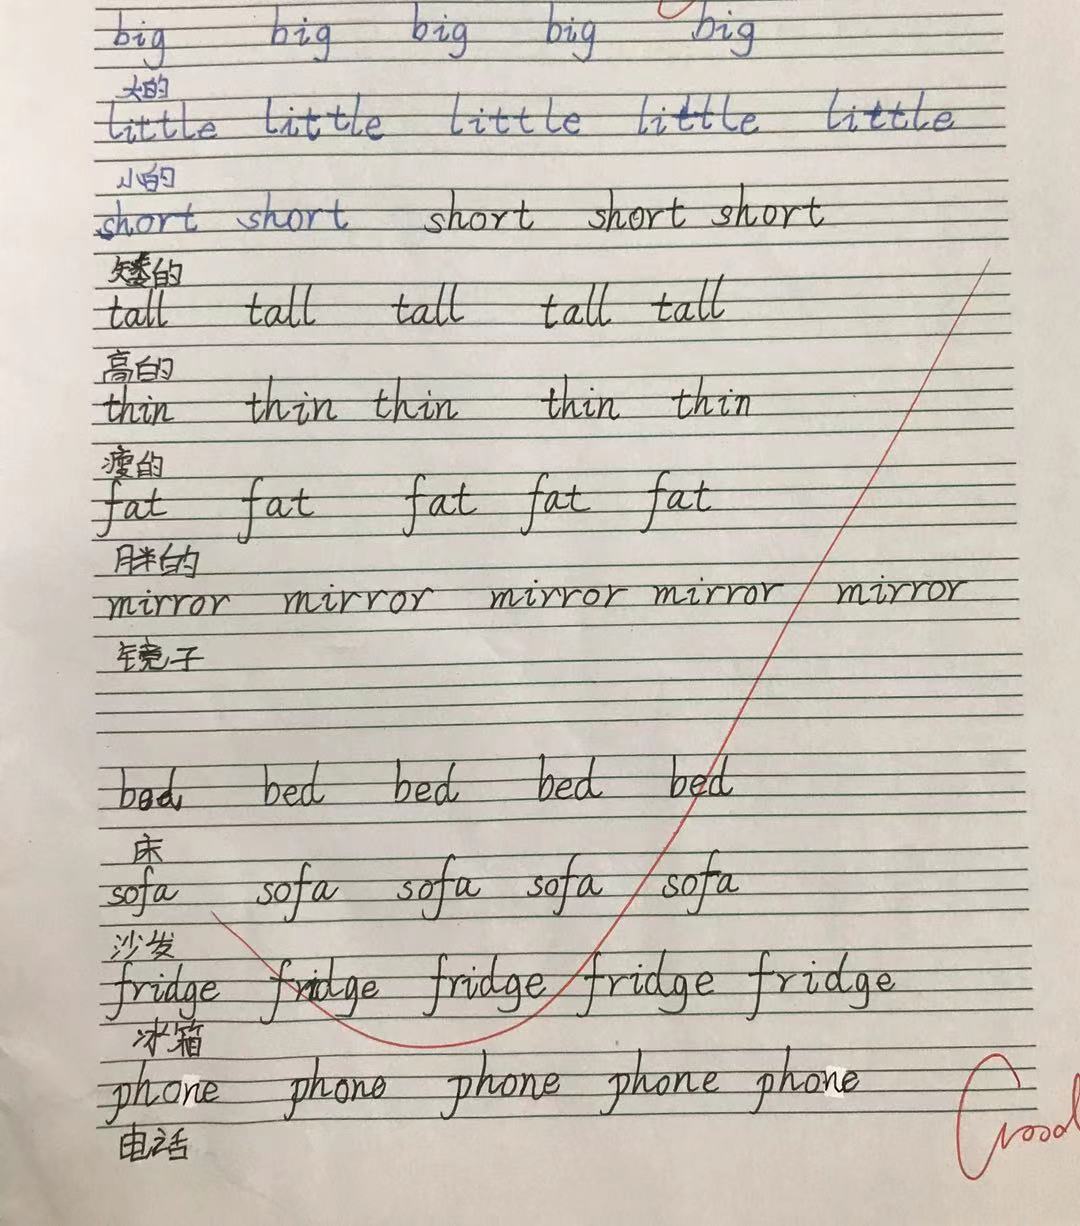 big big big big big
大的
little little little little little
小的
short short short short short
矮的
tall tall tall tall tall
高的
thin thin thin thin thin
瘦的
fat fat fat fat fat
胖的
mirror mirror mirror mirror mirror
镜子
bed bed bed bed bed
床
sofa sofa sofa sofa sofa
沙发
fridge fridge fridge fridge fridge
冰箱
phone phone phone phone phone
电话
Good